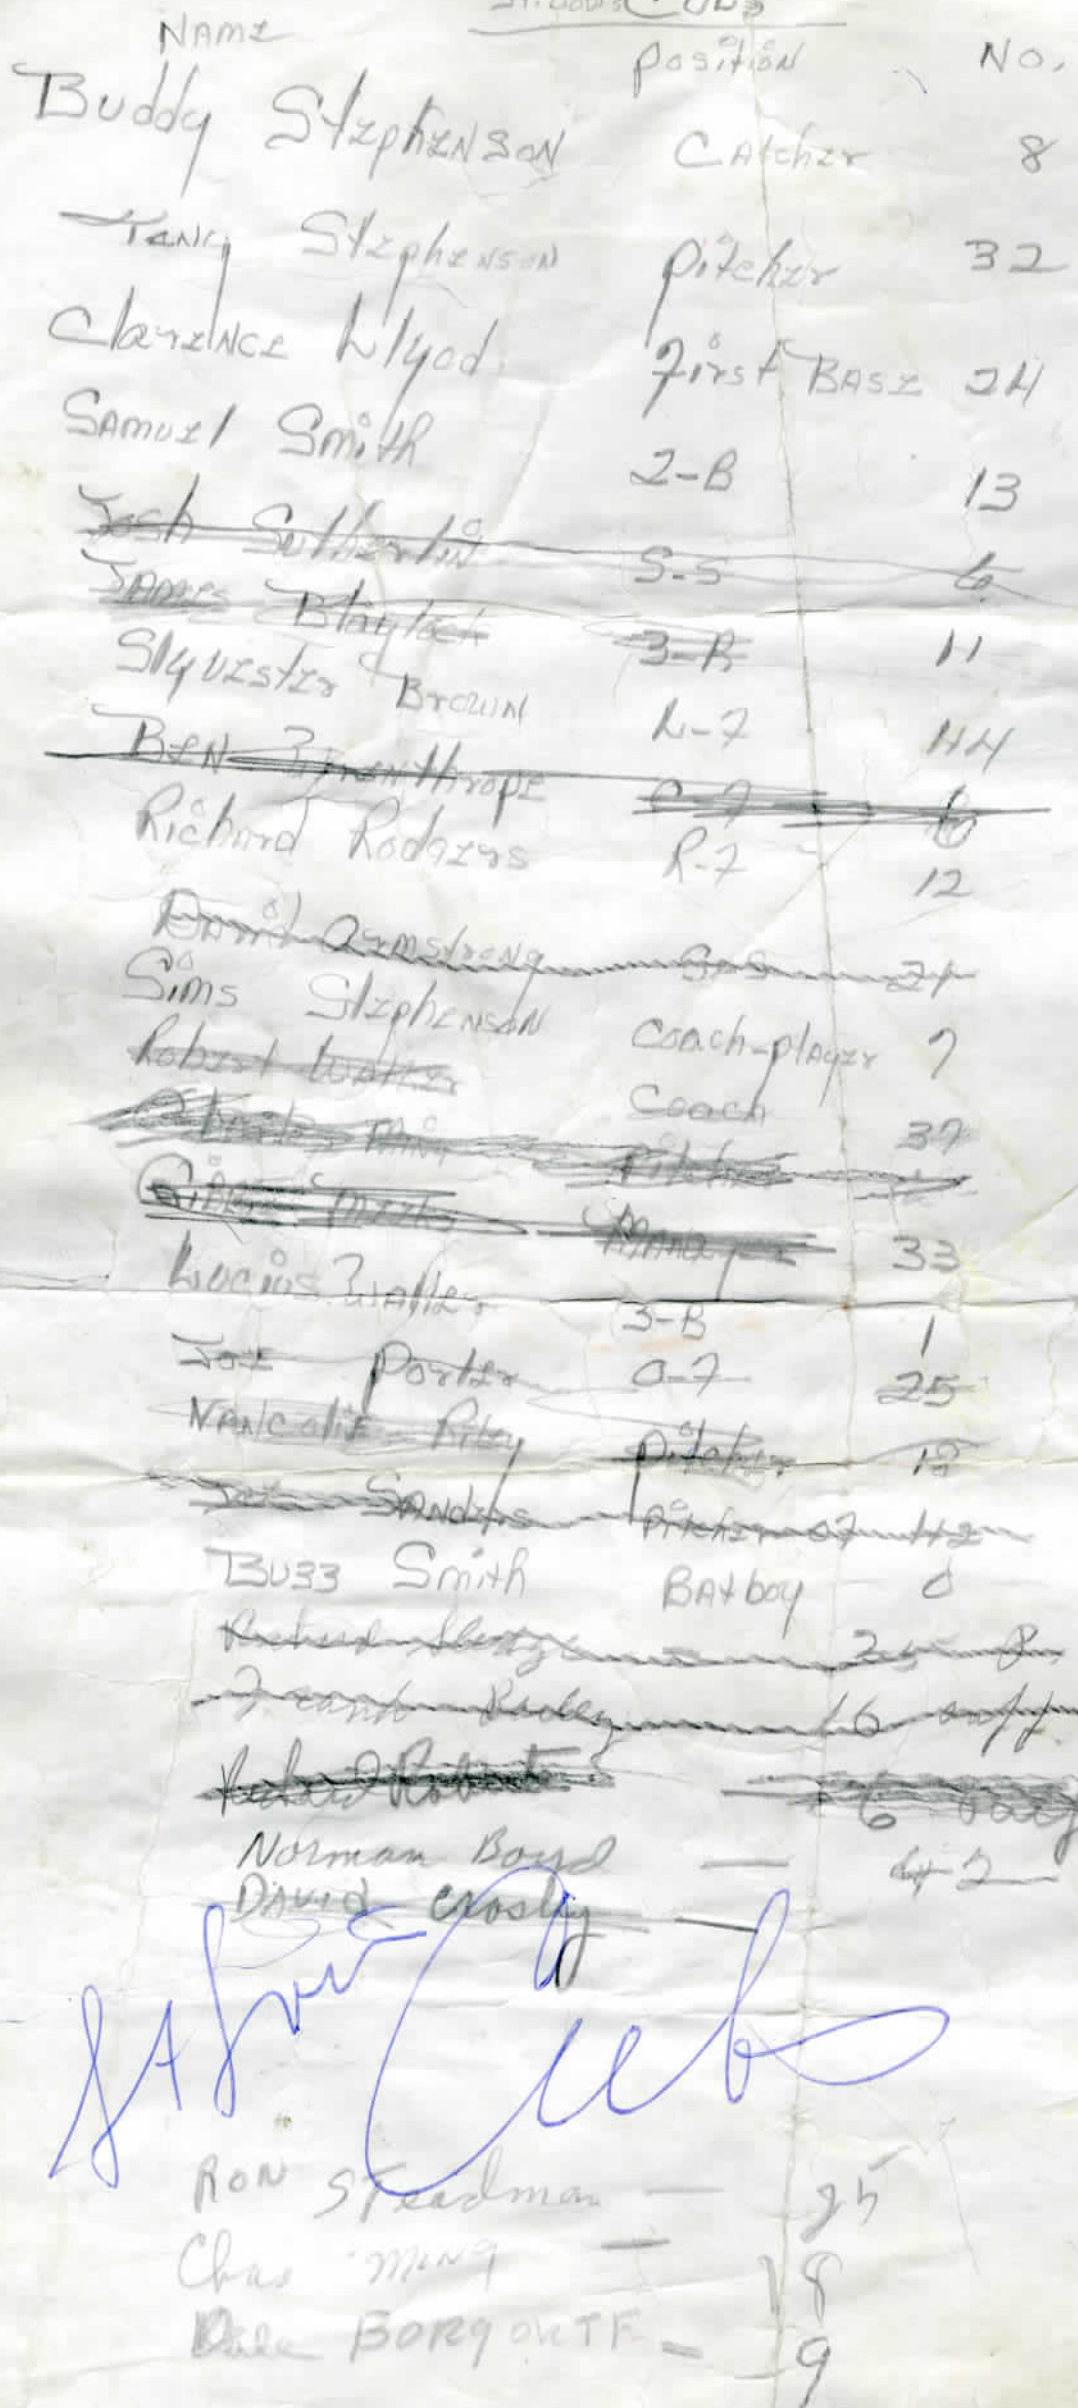 St. Louis Cubs
Name Position No.
Buddy Stephenson Catcher 8
Tany Stephenson Pitcher 32
Clarence Llyod First Base 24
Samuel Smith 2-B 13
Josh Sutherlin S-S 6
James Blaylock 3-B 11
Slyvester Brown L-F 44
Ben
Richard Rodgers R-F 12
David Armstrong 21
Sims Stephenson Coach-player 7
Robert Walker Coach 37
Ming Pitcher
33
Lucius Waller 3-B 1
Joe Porter O-F 25
Riley Pitcher 18
Joe Sanders Pitcher OF 42
Buzz Smith Batboy 0
Richard
Frank 16
Richard Roberts 6
Norman Boyd — 42
David Crosby —
St Louis Cubs
Ron Steadman — 25
Chas Ming — 18
Dale — 9